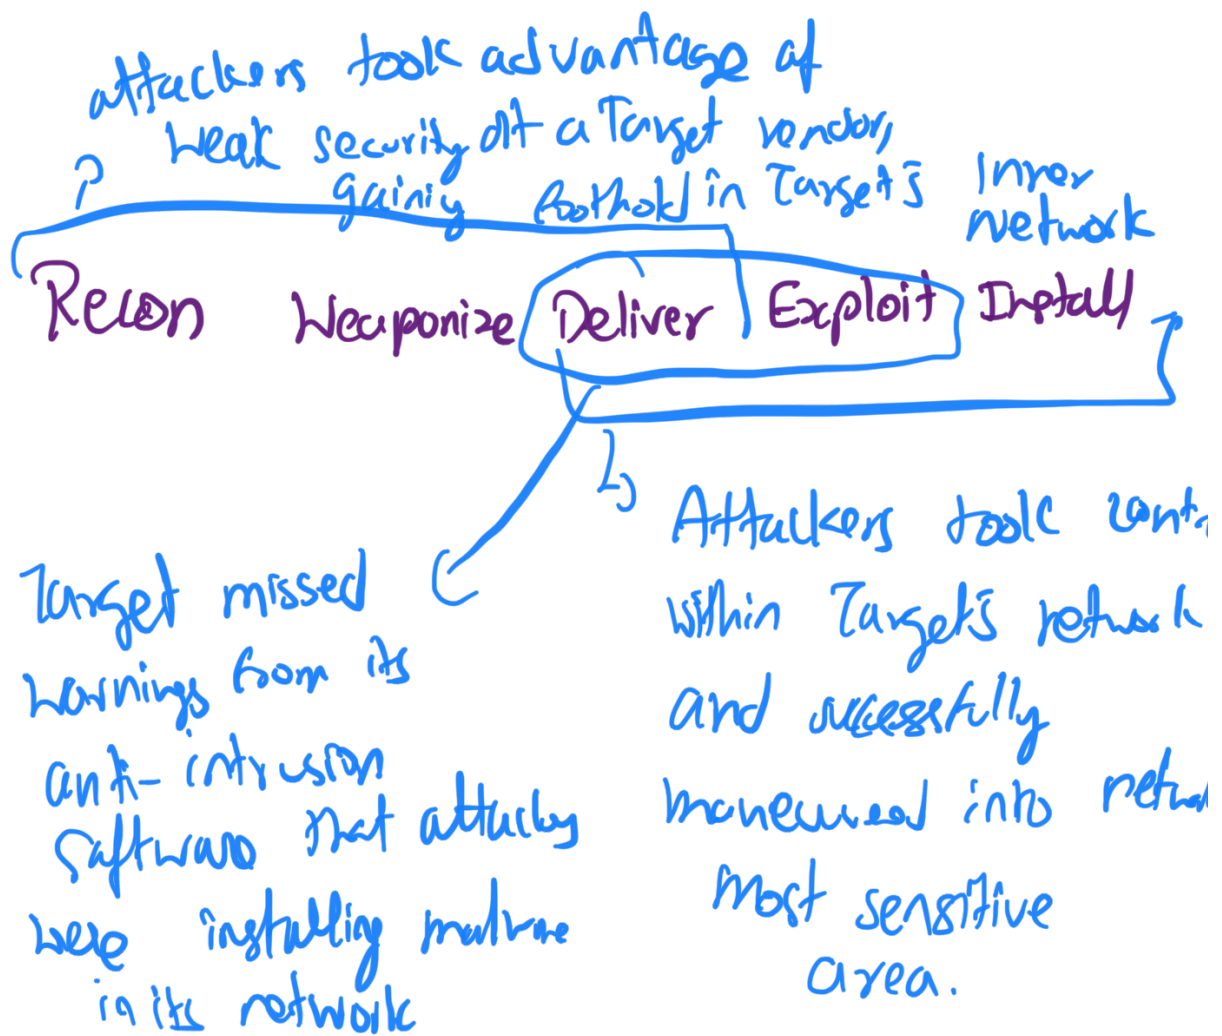 attackers took advantage of
weak security at a Target vendor,
gaining foothold in Target's inner
network
Recon Weaponize Deliver Exploit Install
Target missed
warnings from its
anti-intrusion
software that attackers
were installing malware
in its network
Attackers took cont
within Target's network
and successfully
maneuvered into netwo
most sensitive
area.